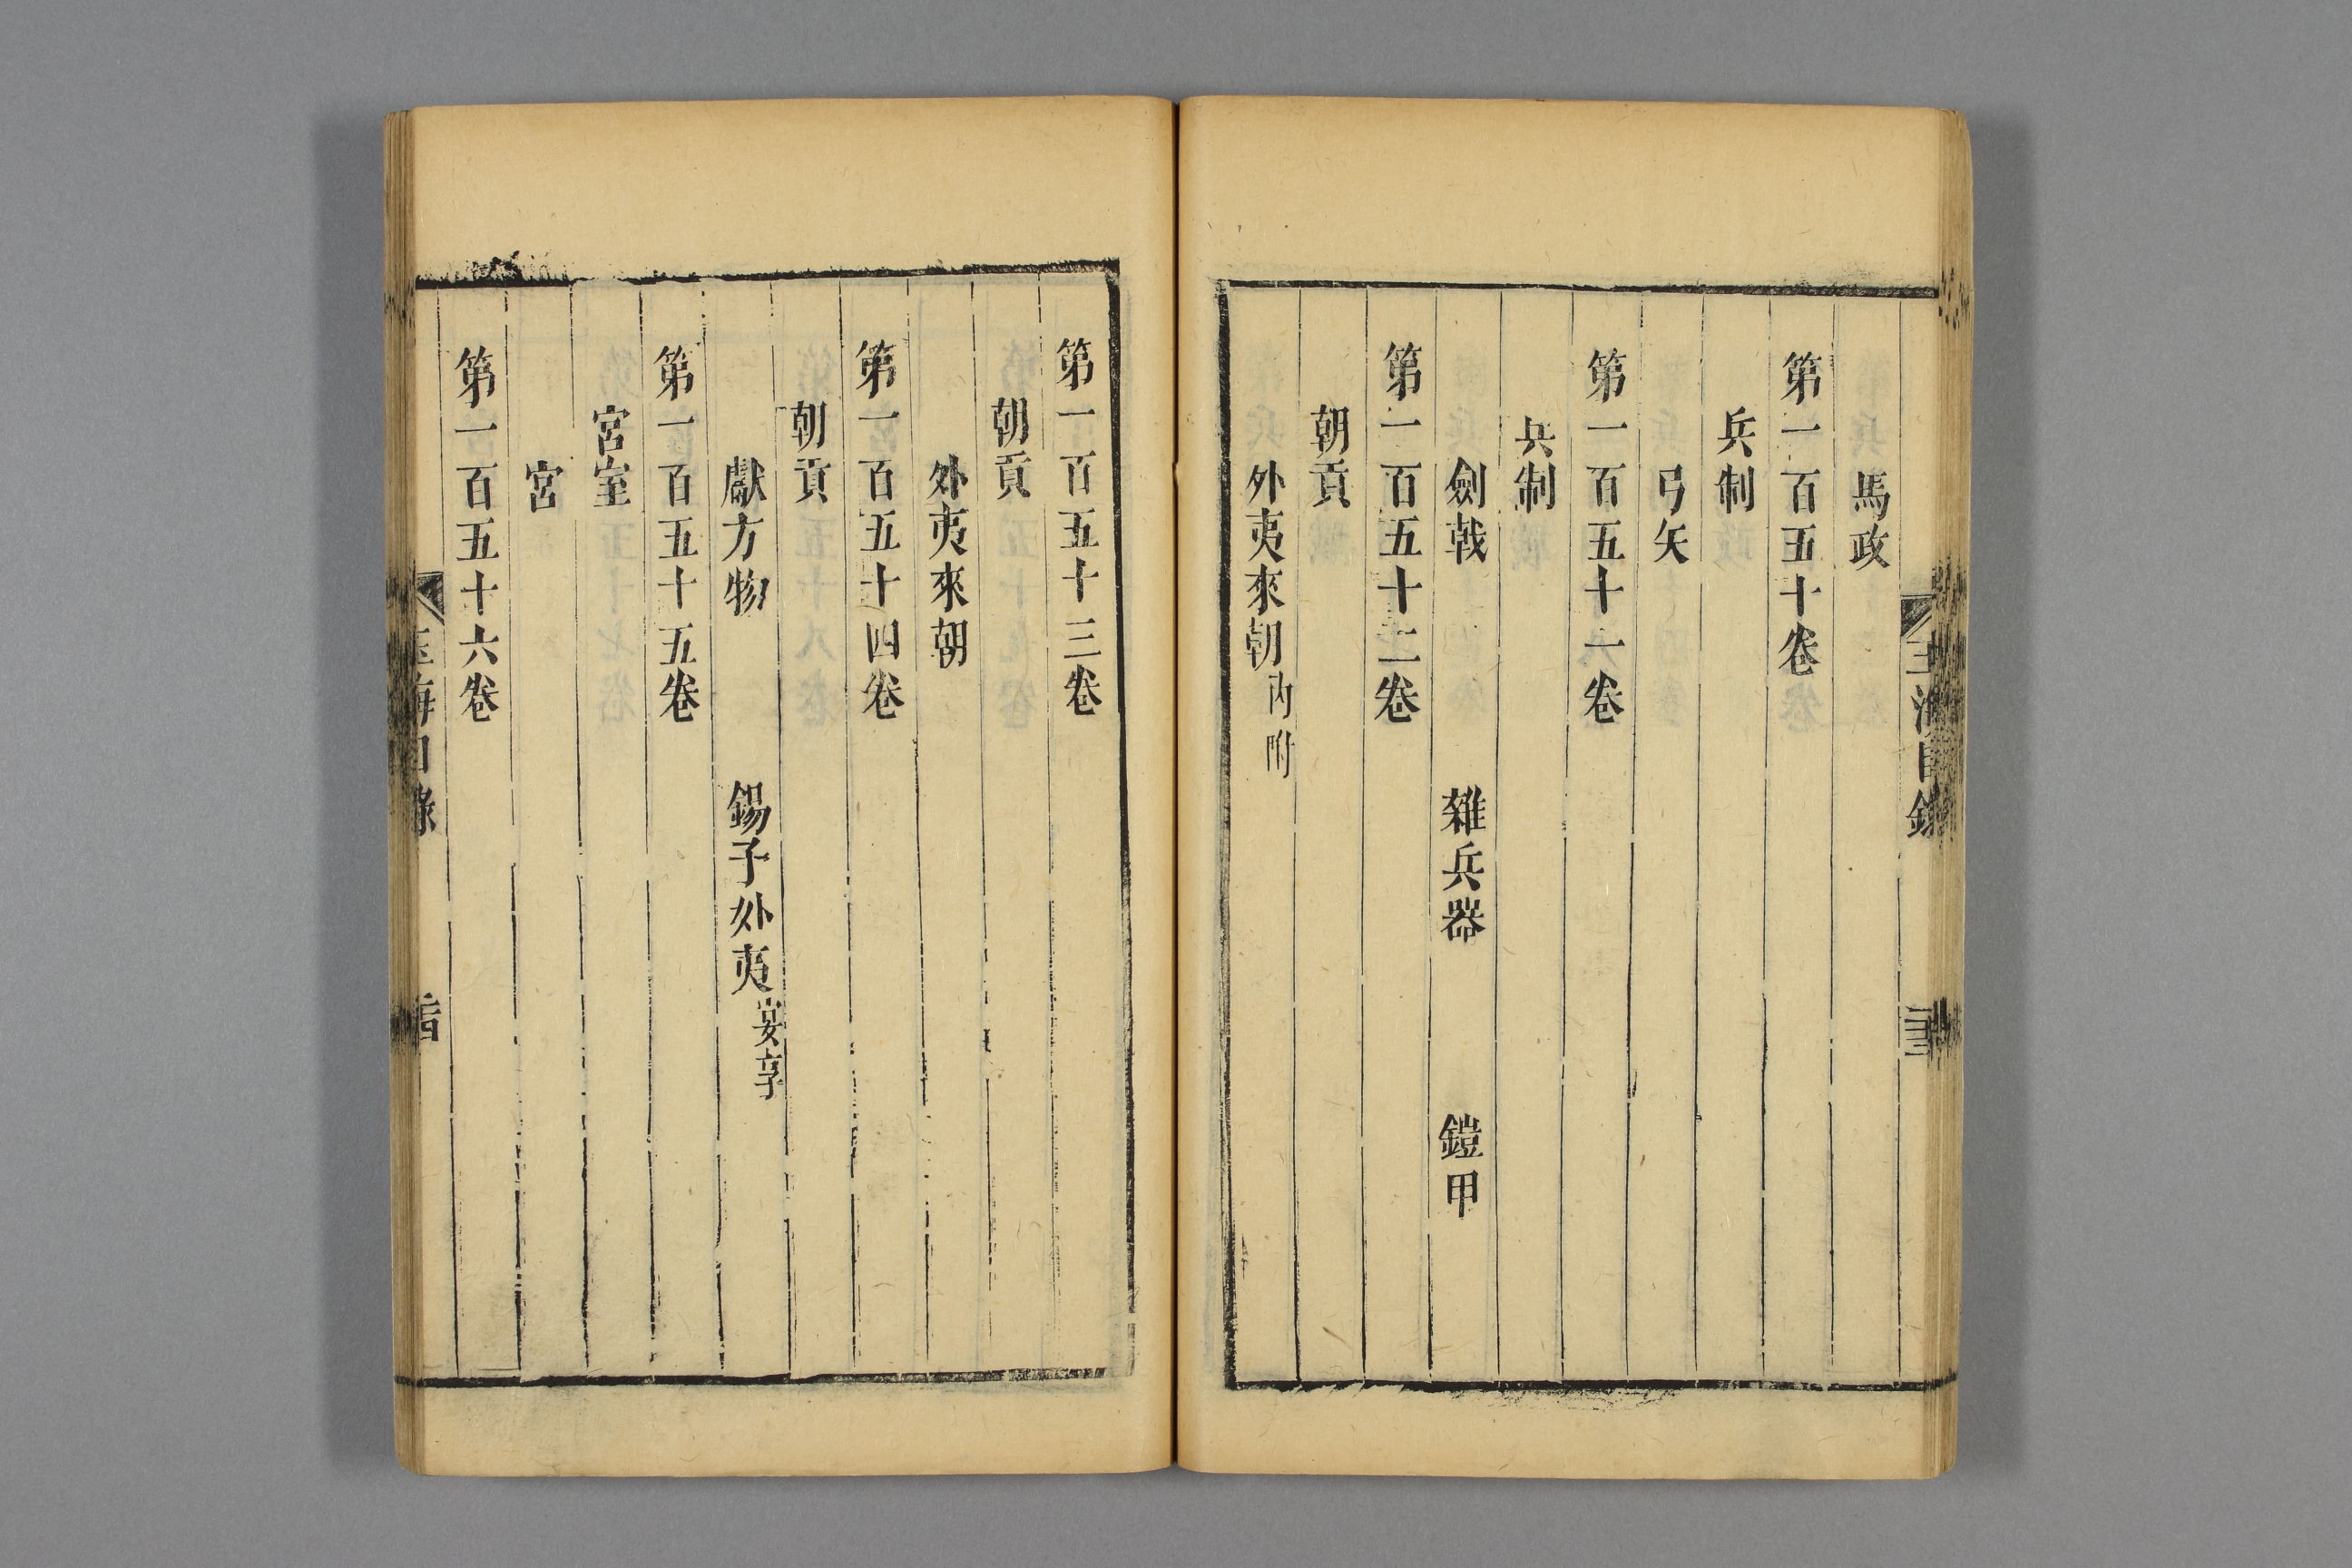 玉海目錄
馬政
第一百五十卷
兵制
弓矢
第一百五十一卷
兵制
劍戟 雜兵器 鎧甲
第一百五十二卷
朝貢
外夷來朝 內附
第一百五十三卷
朝貢
外夷來朝
第一百五十四卷
朝貢
獻方物 錫予外夷 宴享
第一百五十五卷
宮室
宮
第一百五十六卷
玉海目錄